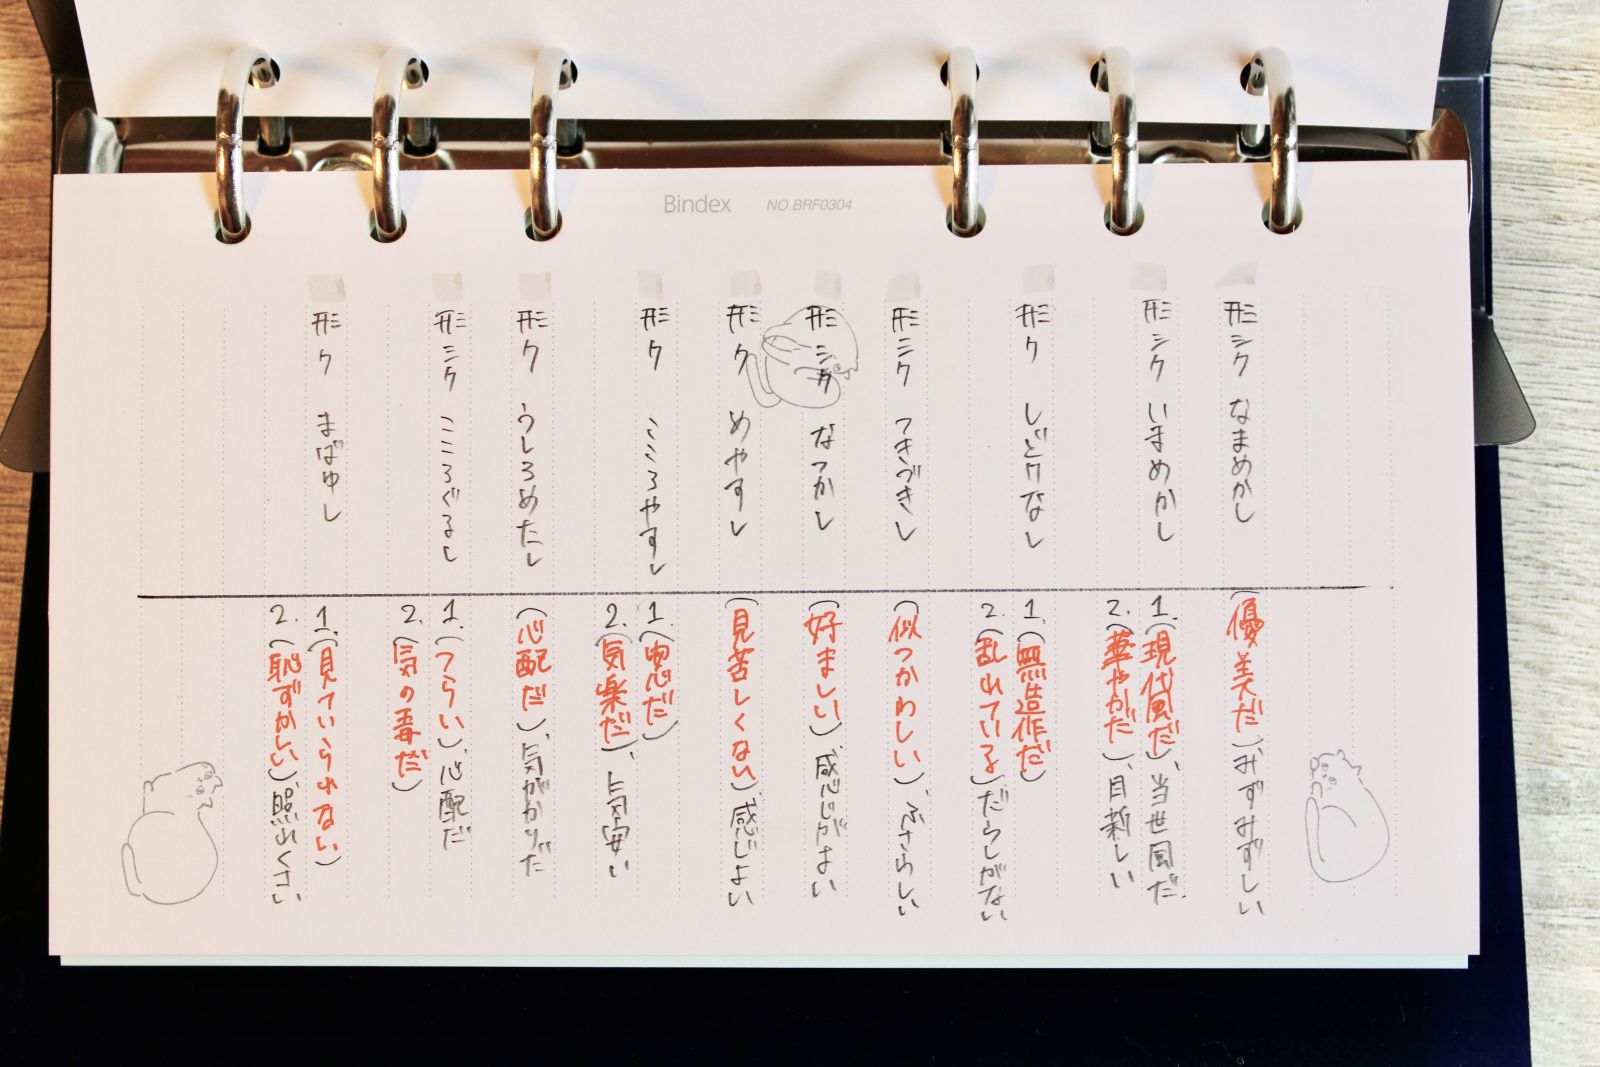 Bindex NO.BRF0304
形シク なまめかし (優美だ)、みずみずしい
形シク いまめかし 1.(現代風だ)、当世風だ
2.(華やかだ)、目新しい
形ク しどけなし 1.(無造作だ)
2.(乱れている)だらしがない
形シク つきづきし (似つかわしい)、ふさわしい
形シク なつかし (好ましい)、感じがよい
形ク めやすし (見苦しくない)、感じよい
形ク こころやすし 1.(安心だ)
2.(気楽だ)、気安い
形ク うしろめたし (心配だ)、気がかりだ
形シク こころぐるし 1.(つらい)、心配だ
2.(気の毒だ)
形ク まばゆし 1.(見ていられない)
2.(恥ずかしい)、照れくさい